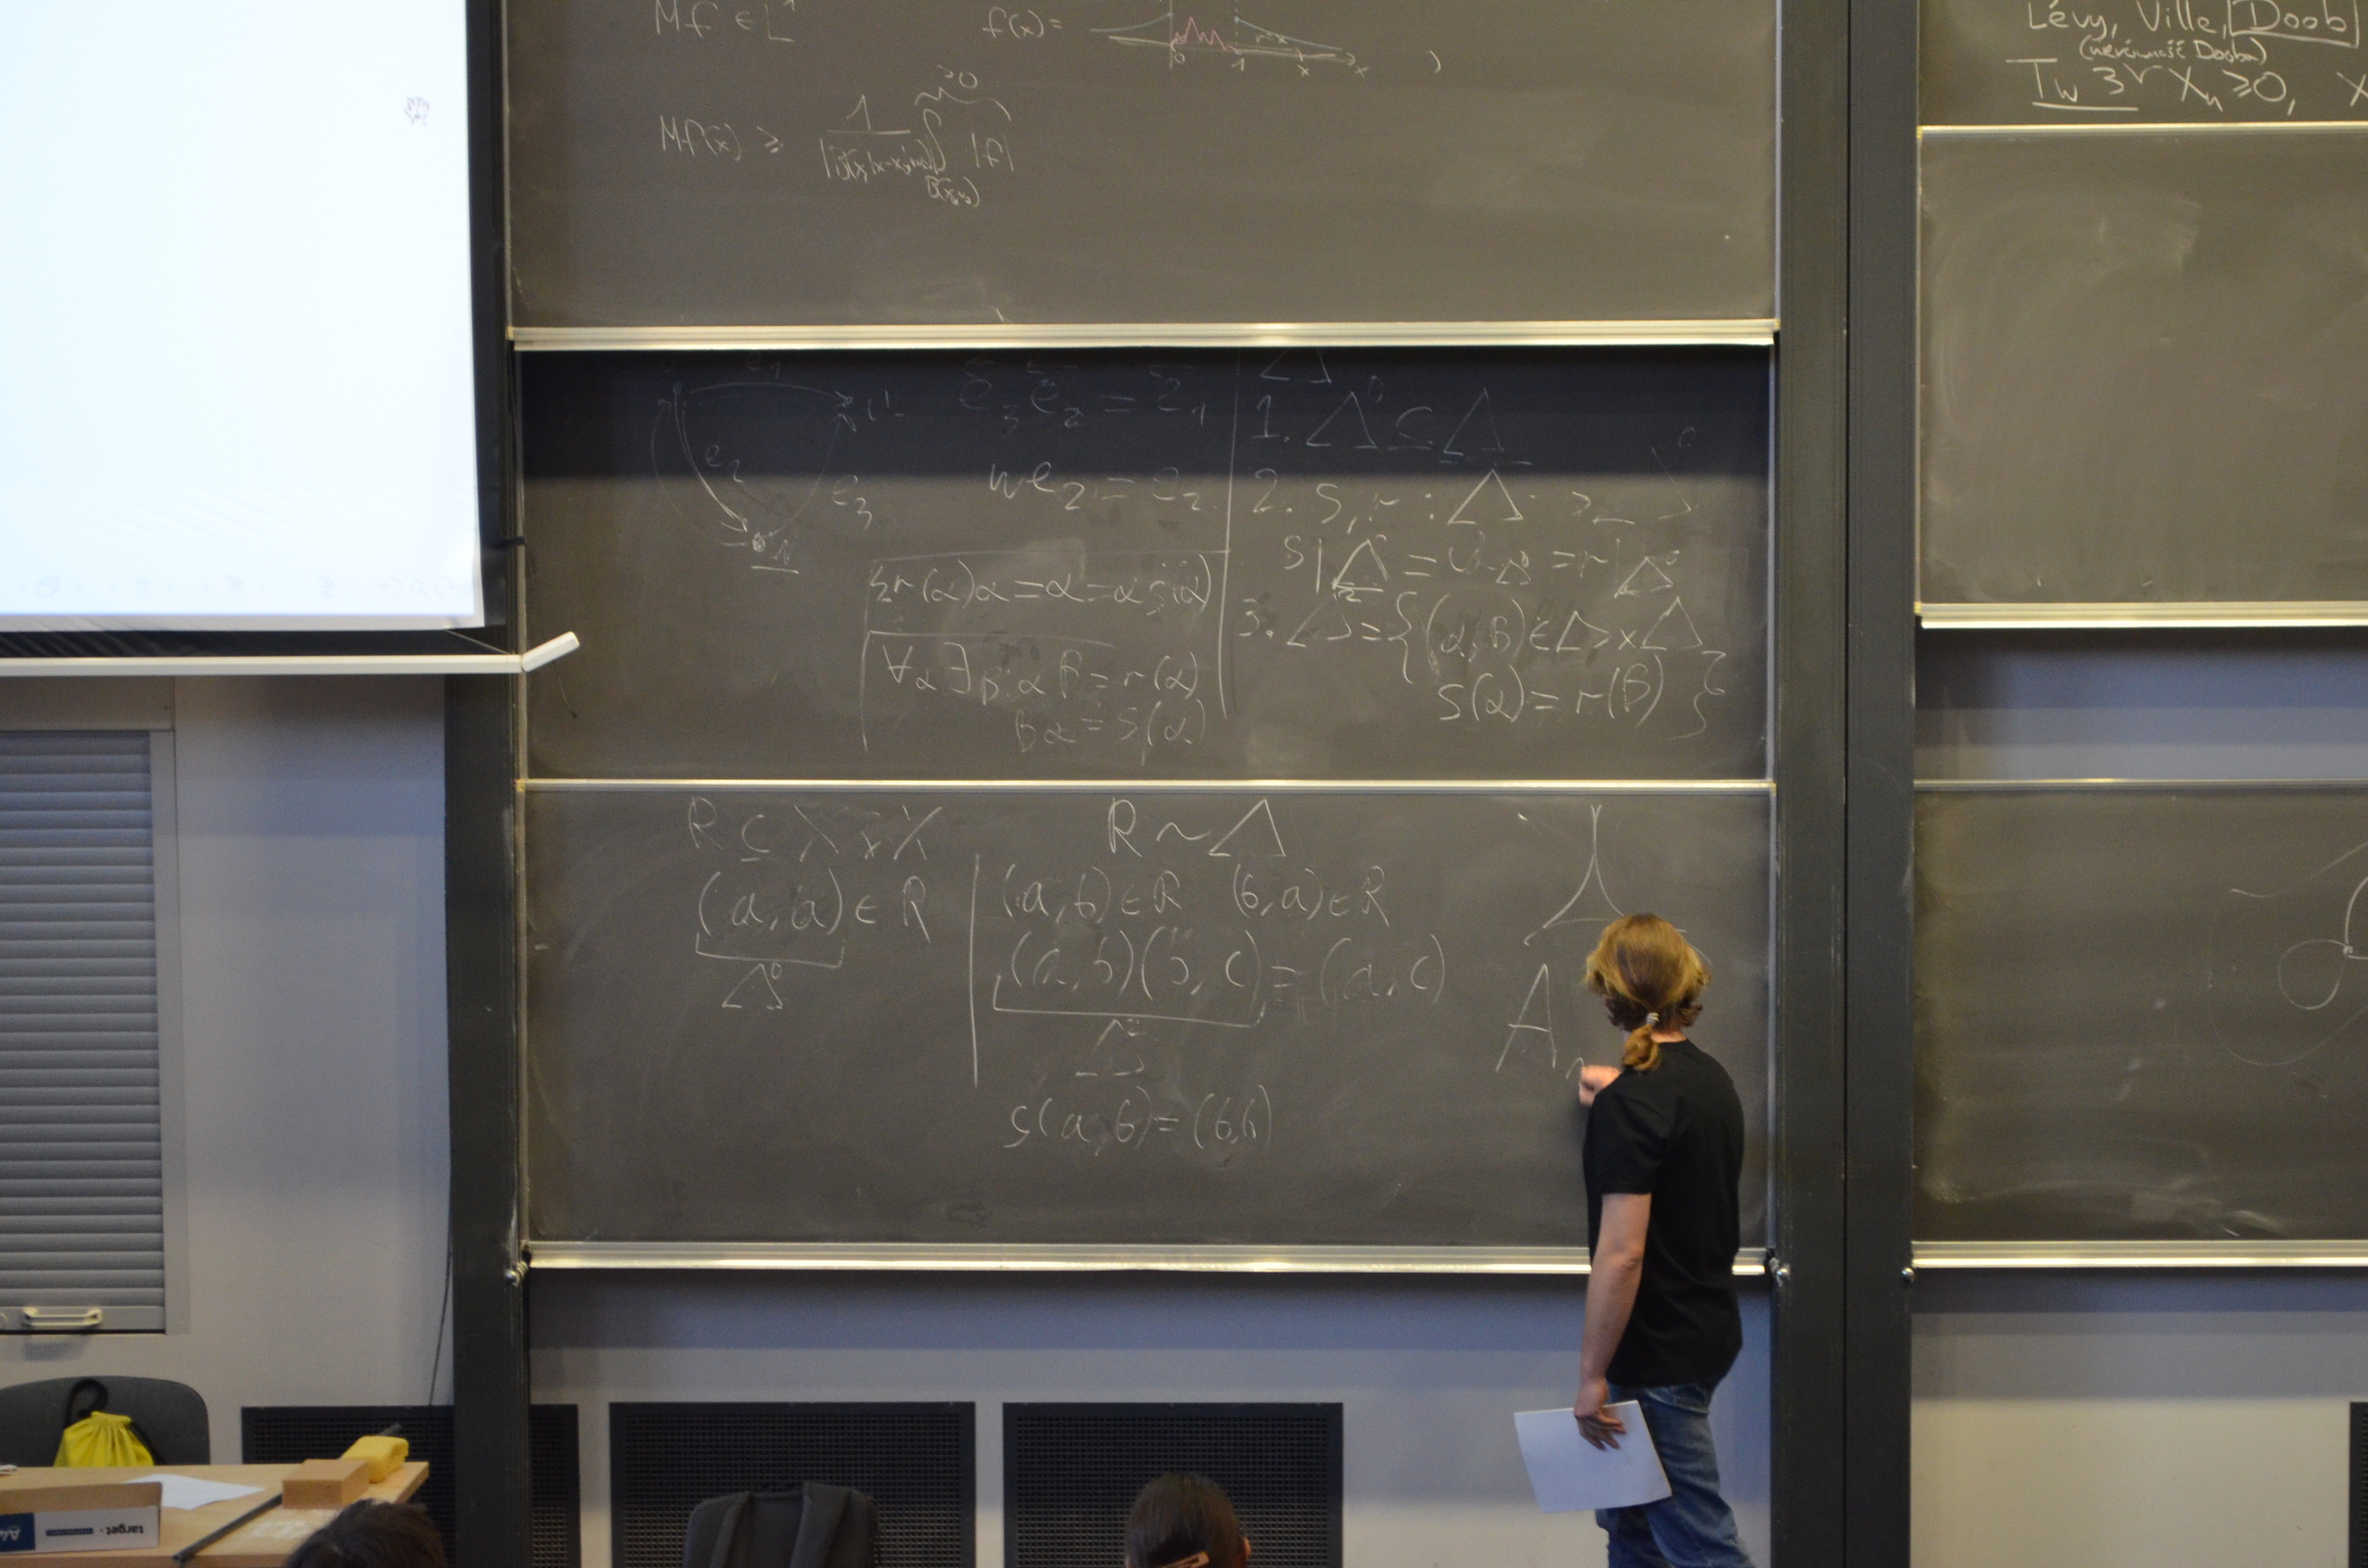 Mf ∈ L¹
f(x) =
0 1 x x
Mf(x) ≥ 1 ∫ |f|
≥0
Lévy, Ville, Doob
(nierówność Dooba)
Tw 3 Xₙ ≥ 0, X
e₁
e₂
e₃
e₃e₂ = e₁
we₂ = e₂
r(α)α = α = αs(α)
∀α ∃β: αβ = r(α)
βα = s(α)
1. Δ⁰ ⊆ Δ
2. s, r : Δ ->
s|Δ⁰ = id_Δ⁰ = r|Δ⁰
3. Δ² = {(α,β) ∈ Δ×Δ
s(α) = r(β)}
R ⊆ X × X
(a,a) ∈ R
Δ⁰
R ~ Δ
(a,b) ∈ R (b,a) ∈ R
(a,b)(b,c) = (a,c)
Δ²
s(a,b) = (b,b)
A
target
A4